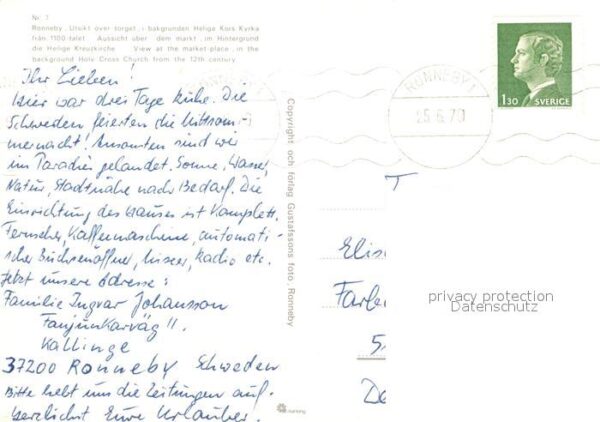 Nr. 7
Ronneby. Utsikt över torget, i bakgrunden Heliga Kors Kyrka
från 1100-talet. Aussicht über dem markt, im Hintergrund
die Heilige Kreuzkirche View at the market-place, in the
background Holy Cross Church from the 12th century.
Ihr Lieben!
Hier war drei Tage Ruhe. Die
Schweden feierten die Mittsom-
mernacht! Ansonsten sind wir
im Paradies gelandet. Sonne, Wasser,
Natur, Stadtnähe nach Bedarf. Die
Einrichtung des Hauses ist komplett.
Fernseher, Kaffemaschine, automati-
scher Büchsenöffner, Mixer, Radio etc.
Jetzt unsere Adresse:
Familie Ingvar Johansson
Fanjunkarväg 11.
Kallinge
37200 RONNEBY Schweden
Bitte hebt uns die Zeitungen auf.
Herzlichst Eure Urlauber.
Copyright och förlag Gustafssons foto, Ronneby
RONNEBY 1
25.6.79
1.30 SVERIGE
Elis
Farbe
5
De
privacy protection
Datenschutz